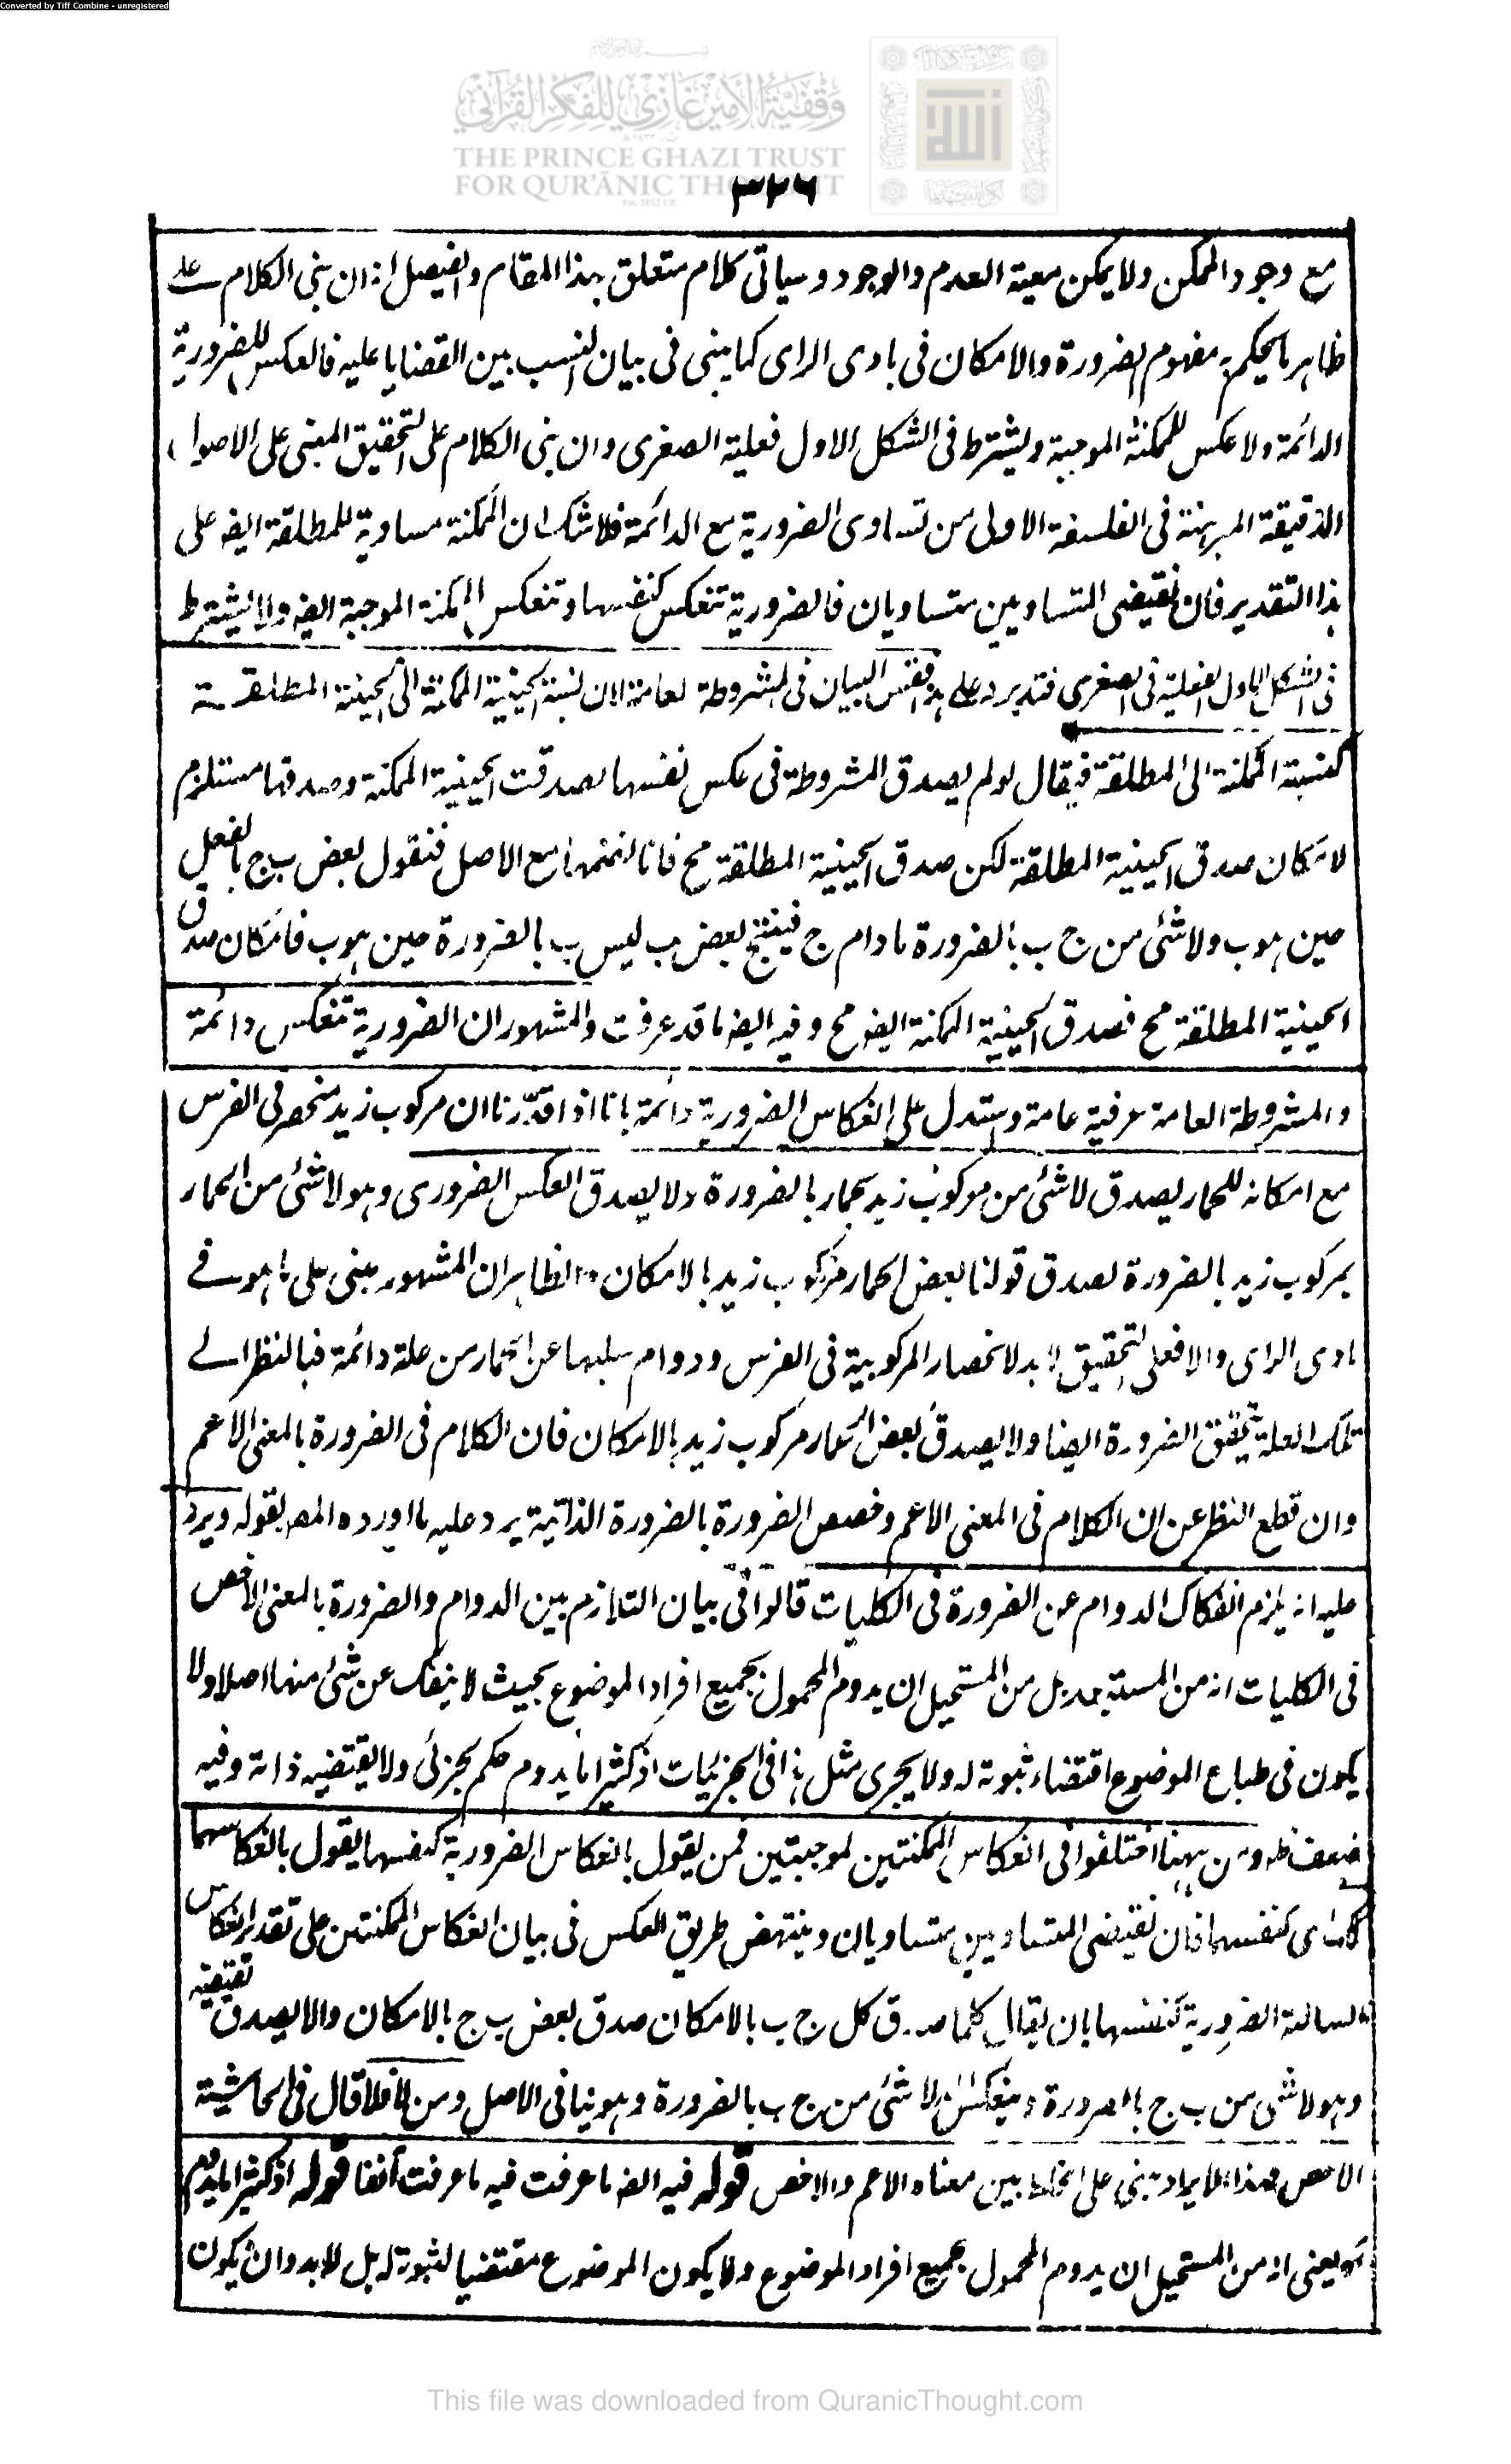 Converted by Tiff Combine - unregistered
وقفية الأمير غازي للفكر القرآني
THE PRINCE GHAZI TRUST
FOR QUR'ĀNIC THOUGHT
٣٢٦
مع وجود الممكن ولا يمكن معية العدم والوجود وسياتى كلام متعلق بهذا المقام والفيصل ان بنى الكلام على
ظاهر ما يحكم به مفهوم الضرورة والامكان فى بادى الراى كما ينبى فى بيان النسب بين القضايا عليه فالعكس للضرورية
الدائمة ولا عكس للممكنة الموجبة ويشترط فى الشكل الاول فعلية الصغرى وان بنى الكلام على التحقيق المبنى على الاصول
الدقيقة المبرهنة فى الفلسفة الاولى من تساوى الضرورية مع الدائمة فلا شك ان الممكنة مساوية للمطلقة ايضه على
هذا التقدير فان نقيضى المتساويين متساويان فالضرورية تنعكس كنفسها وتنعكس الممكنة الموجبة ايضه ولا يشترط
فى الشكل الاول الفعلية فى الصغرى فتدبر وعلى هذا فقس البيان فى المشروطة العامة لان نسبة الحينية الممكنة الى الحينية المطلقة
كنسبة الممكنة الى المطلقة فيقال لو لم يصدق المشروطة فى عكس نفسها لصدقت الحينية الممكنة وصدقها مستلزم
لامكان صدق الحينية المطلقة لكن صدق الحينية المطلقة مح فانا نضمها مع الاصل فنقول بعض ب ج بالفعل
حين هو ب ولا شئ من ج ب بالضرورة ما دام ج فينتج بعض ب ليس ب بالضرورة حين هو ب فامكان صدق
الحينية المطلقة مح فصدق الحينية الممكنة ايضه مح وفيه ايضه ما قد عرفت والمشهور ان الضرورية تنعكس دائمة
والمشروطة العامة عرفية عامة واستدل على انعكاس الضرورية دائمة بانا اذا قدّرنا ان مركوب زيد منحصر فى الفرس
مع امكانه للحمار يصدق لا شئ من مركوب زيد بحمار بالضرورة ولا يصدق العكس الضرورى وهو لا شئ من الحمار
بمركوب زيد بالضرورة لصدق قولنا بعض الحمار مركوب زيد بالامكان والظاهر ان المشهور مبنى على ما هو فى
بادى الراى والا فعلى التحقيق لا بد لانحصار المركوبية فى الفرس ودوام سلبها عن الحمار من علة دائمة فبالنظر الى
تلك العلة يتحقق الضرورة ايضا ولا يصدق بعض الحمار مركوب زيد بالامكان فان الكلام فى الضرورة بالمعنى الاعم
وان قطع النظر عن ان الكلام فى المعنى الاعم وخصص الضرورة بالضرورة الذاتية يرد عليه ما اورده المصه بقوله ويرد
عليه انه يلزم انفكاك الدوام عن الضرورة فى الكليات قالوا فى بيان التلازم بين الدوام والضرورة بالمعنى الاخص
فى الكليات انه من المستبعد بل من المستحيل ان يدوم المحمول بجميع افراد الموضوع بحيث لا ينفك عن شئ منها اصلا ولا
يكون فى طباع الموضوع اقتضاء ثبوته له ولا يجرى مثل هذا فى الجزئيات اذ كثيرا ما يدوم حكم لجزئى ولا يقتضيه ذاته وفيه
ضعف ظه ومن ههنا اختلفوا فى انعكاس الممكنتين الموجبتين فمن يقول بانعكاس الضرورية كنفسها يقول بانعكاسهما
كذلك اى كنفسهما فان نقيضى المتساويين متساويان وينتهض طريق العكس فى بيان انعكاس الممكنتين على تقدير انعكاس
السالبة الضرورية كنفسها بان يقال كلما صدق كل ج ب بالامكان صدق بعض ب ج بالامكان والا يصدق نقيضه
وهو لا شئ من ب ج بالضرورة وينعكس الى لا شئ من ج ب بالضرورة وهو ينافى الاصل ومن لا فلا قال فى الحاشية
الاخص فهذا الايراد مبنى على الخلط بين معناه الاعم والاخص قوله فيه ايضه ما عرفت فيه ما عرفت آنفا قوله اذ كثيرا ما يدوم
يعنى انه من المستحيل ان يدوم المحمول بجميع افراد الموضوع ولا يكون الموضوع مقتضيا لثبوته له بل لا بد وان يكون
This file was downloaded from QuranicThought.com